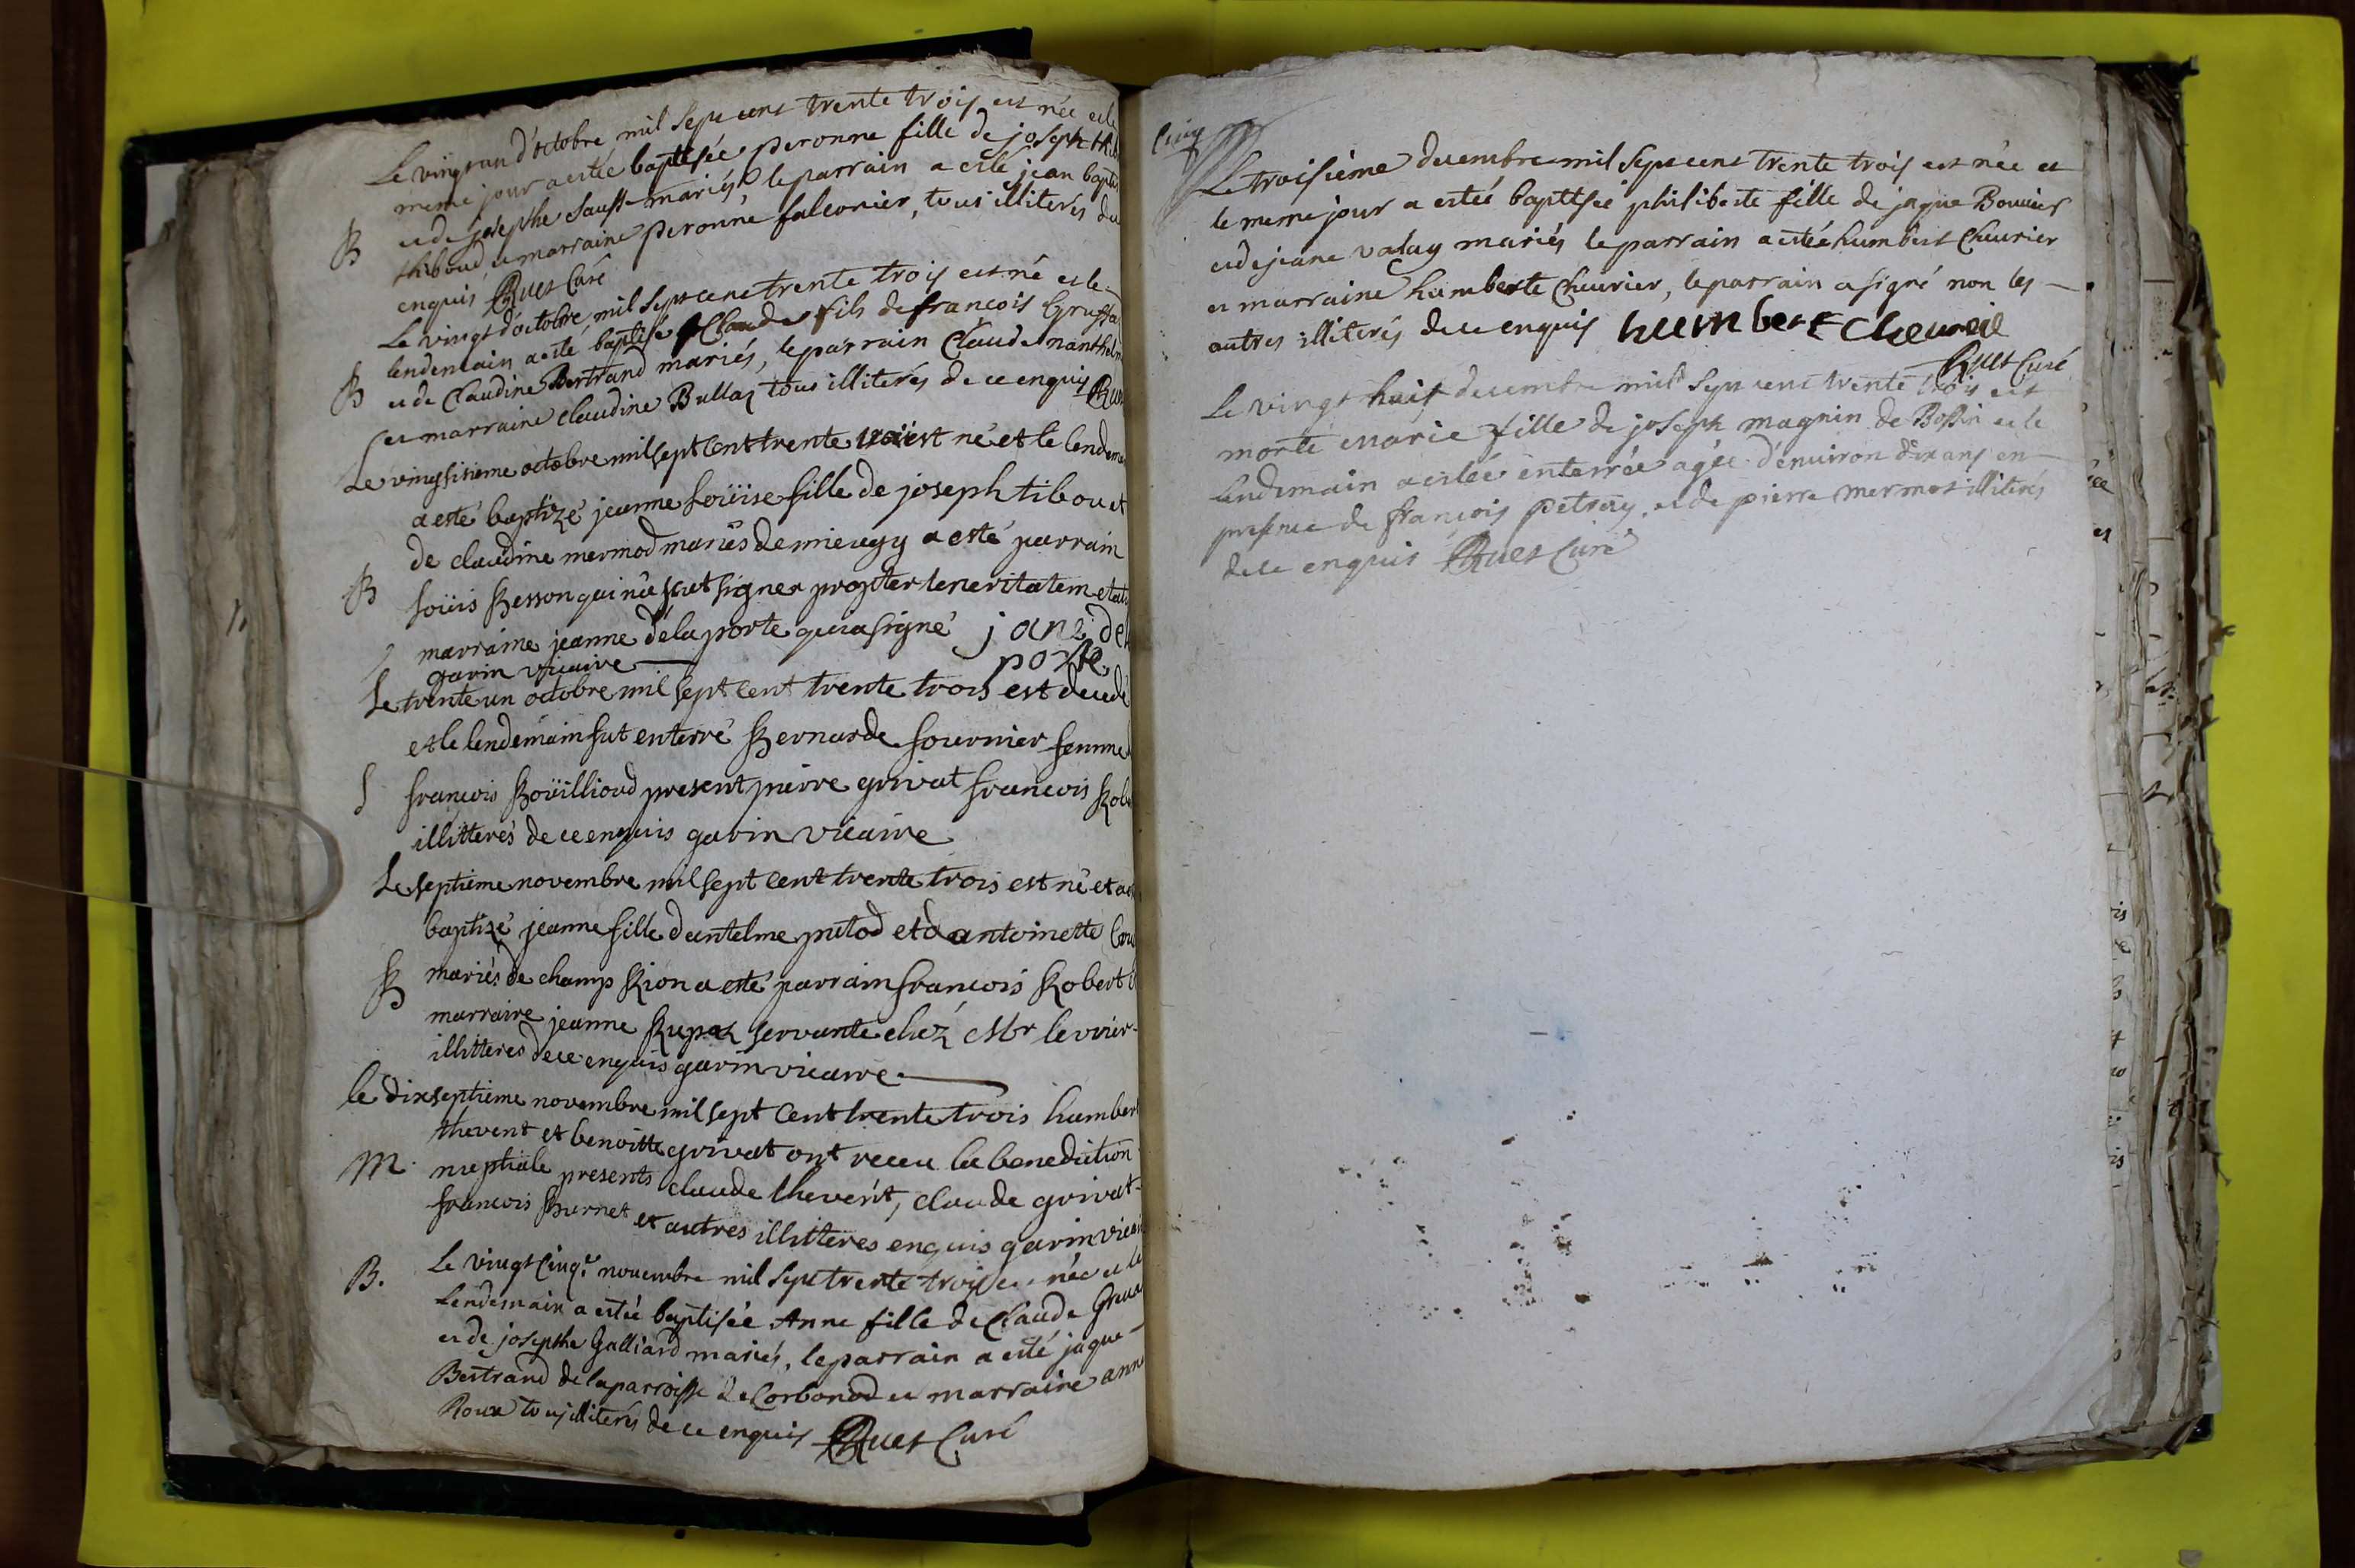 Le vingt un d'octobre mil sept cent trente trois est née et le
meme jour a estée baptisée peronne fille de joseph thib
B et de josephe Sauss mariés le parrain a esté jean bapti
thiboud, et marraine peronne falconier, tous illiterés de ce
enquis Ruet Curé
Le vingt d'octobre mil sept cent trente trois est né et le
lendemain a esté baptisé Claude fils de francois Gruffa
B et de Claudine Bertrand mariés, le parrain Claude nanthelm
et marraine claudine Bullaz tous illiterés de ce enquis Ruet
Le vingsisieme octobre mil sept cent trente trois est né et le lendem
a esté baptizé jeanne Loüise fille de joseph tibou et
de claudine mermod mariés de mieugy a esté parrain
B Loüis Besson qui n'a scut signer propter teneritatem etat
marraine jeanne de la porte qui a signé jane del
garin vicaire porte
Le trente un octobre mil sept cent trente trois est decedé
et le lendemain fut enterré Bernarde fournier femme
S francois Boüillioud present pierre grivat francois Rob
illitterés de ce enquis garin vicaire
Le septieme novembre mil sept cent trente trois est né et a
baptizé jeanne fille dantelme pitod et d antoinette
B mariés de champ Rion a esté parrain francois Robert
marraine jeanne Rupaz servante chéz Mr levrier
illitteres de ce enquis garin vicaire
le dixseptieme novembre mil sept cent trente trois humber
thevent et benoitte grivat ont receu la benediction
M. nuptiale presents claude thevent, claude grivat
francois Burnet et autres illitteres enquis garin vicai
B. Le vingt Cinq.e novembre mil sept trente trois est née et le
lendemain a estée baptisée Anne fille de Claude
et de josephe Galliard mariés, le parrain a esté jaque
Bertrand de la parroisse de Corbonod et marraine anne
Roux tous illiterés de ce enquis Ruet Curé
Cinq
Le troisième decembre mil sept cent trente trois est née et
le meme jour a estée baptisée philiberte fille de jaque Bouvier
et de jeane valay mariés le parrain a estée humbert Chevrier
et marraine humberte Chevrier, le parrain a signé non les
autres illiterés de ce enquis humbert Chevrie
Ruet Curé
Le vingt huit decembre mil sept cent trente trois est
morte Marie fille de joseph magnin de Bossin et le
lendemain a estée enterrée agée d'environ dix ans en
presence de françois petray, et de pierre mermet illiterés
de ce enquis Ruet Curé